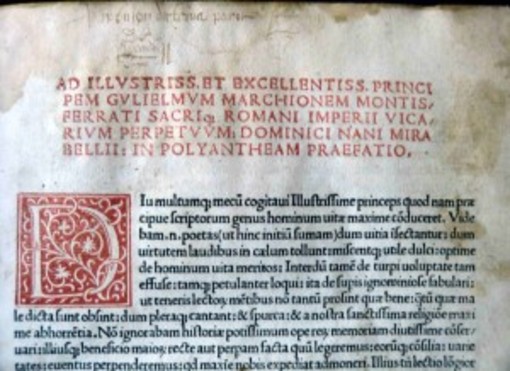 AD ILLVSTRISS. ET EXCELLENTISS. PRINCI
PEM GVLIELMVM MARCHIONEM MONTIS,
FERRATI SACRIq; ROMANI IMPERII VICA,
RIVM PERPETVVM: DOMINICI NANI MIRA
BELLII: IN POLYANTHEAM PRAEFATIO.
DIu multumq; mecū cogitaui Illustrissime princeps quod nam præ
cipue scriptorum genus hominum uitæ maxime cōduceret. Vide
bam. n. poetas (ut hinc initiū sumam) dum uitia īsectantur: dum
uirtutem laudibus in cælum tollunt: miscentq; utile dulci: optime
de hominum uita meritos: Interdū tamē de turpi uoluptate tam
effuse: tamq; petulanter loqui: ita de supis ignominiose fabulari:
ut teneris lectoꝝ mētibus nō tantū prosint quæ bene: quā quæ ma
le dicta sunt obsint: dum pleraq; cantant: & spurca: & a nostra sanctissima religiōe maxi
me abhorrētia. Nō ignorabam historiæ potissimum ope reꝝ memoriam diutissime cōser/
uari: illiusq; beneficio maioꝝ recte aut perpam facta quū legeremus: eoꝝq; cōsilia: uarie
tates: euentus perpenderemus: qd maxīe nobis expediat admoneri. Illius tn lectio lōgior